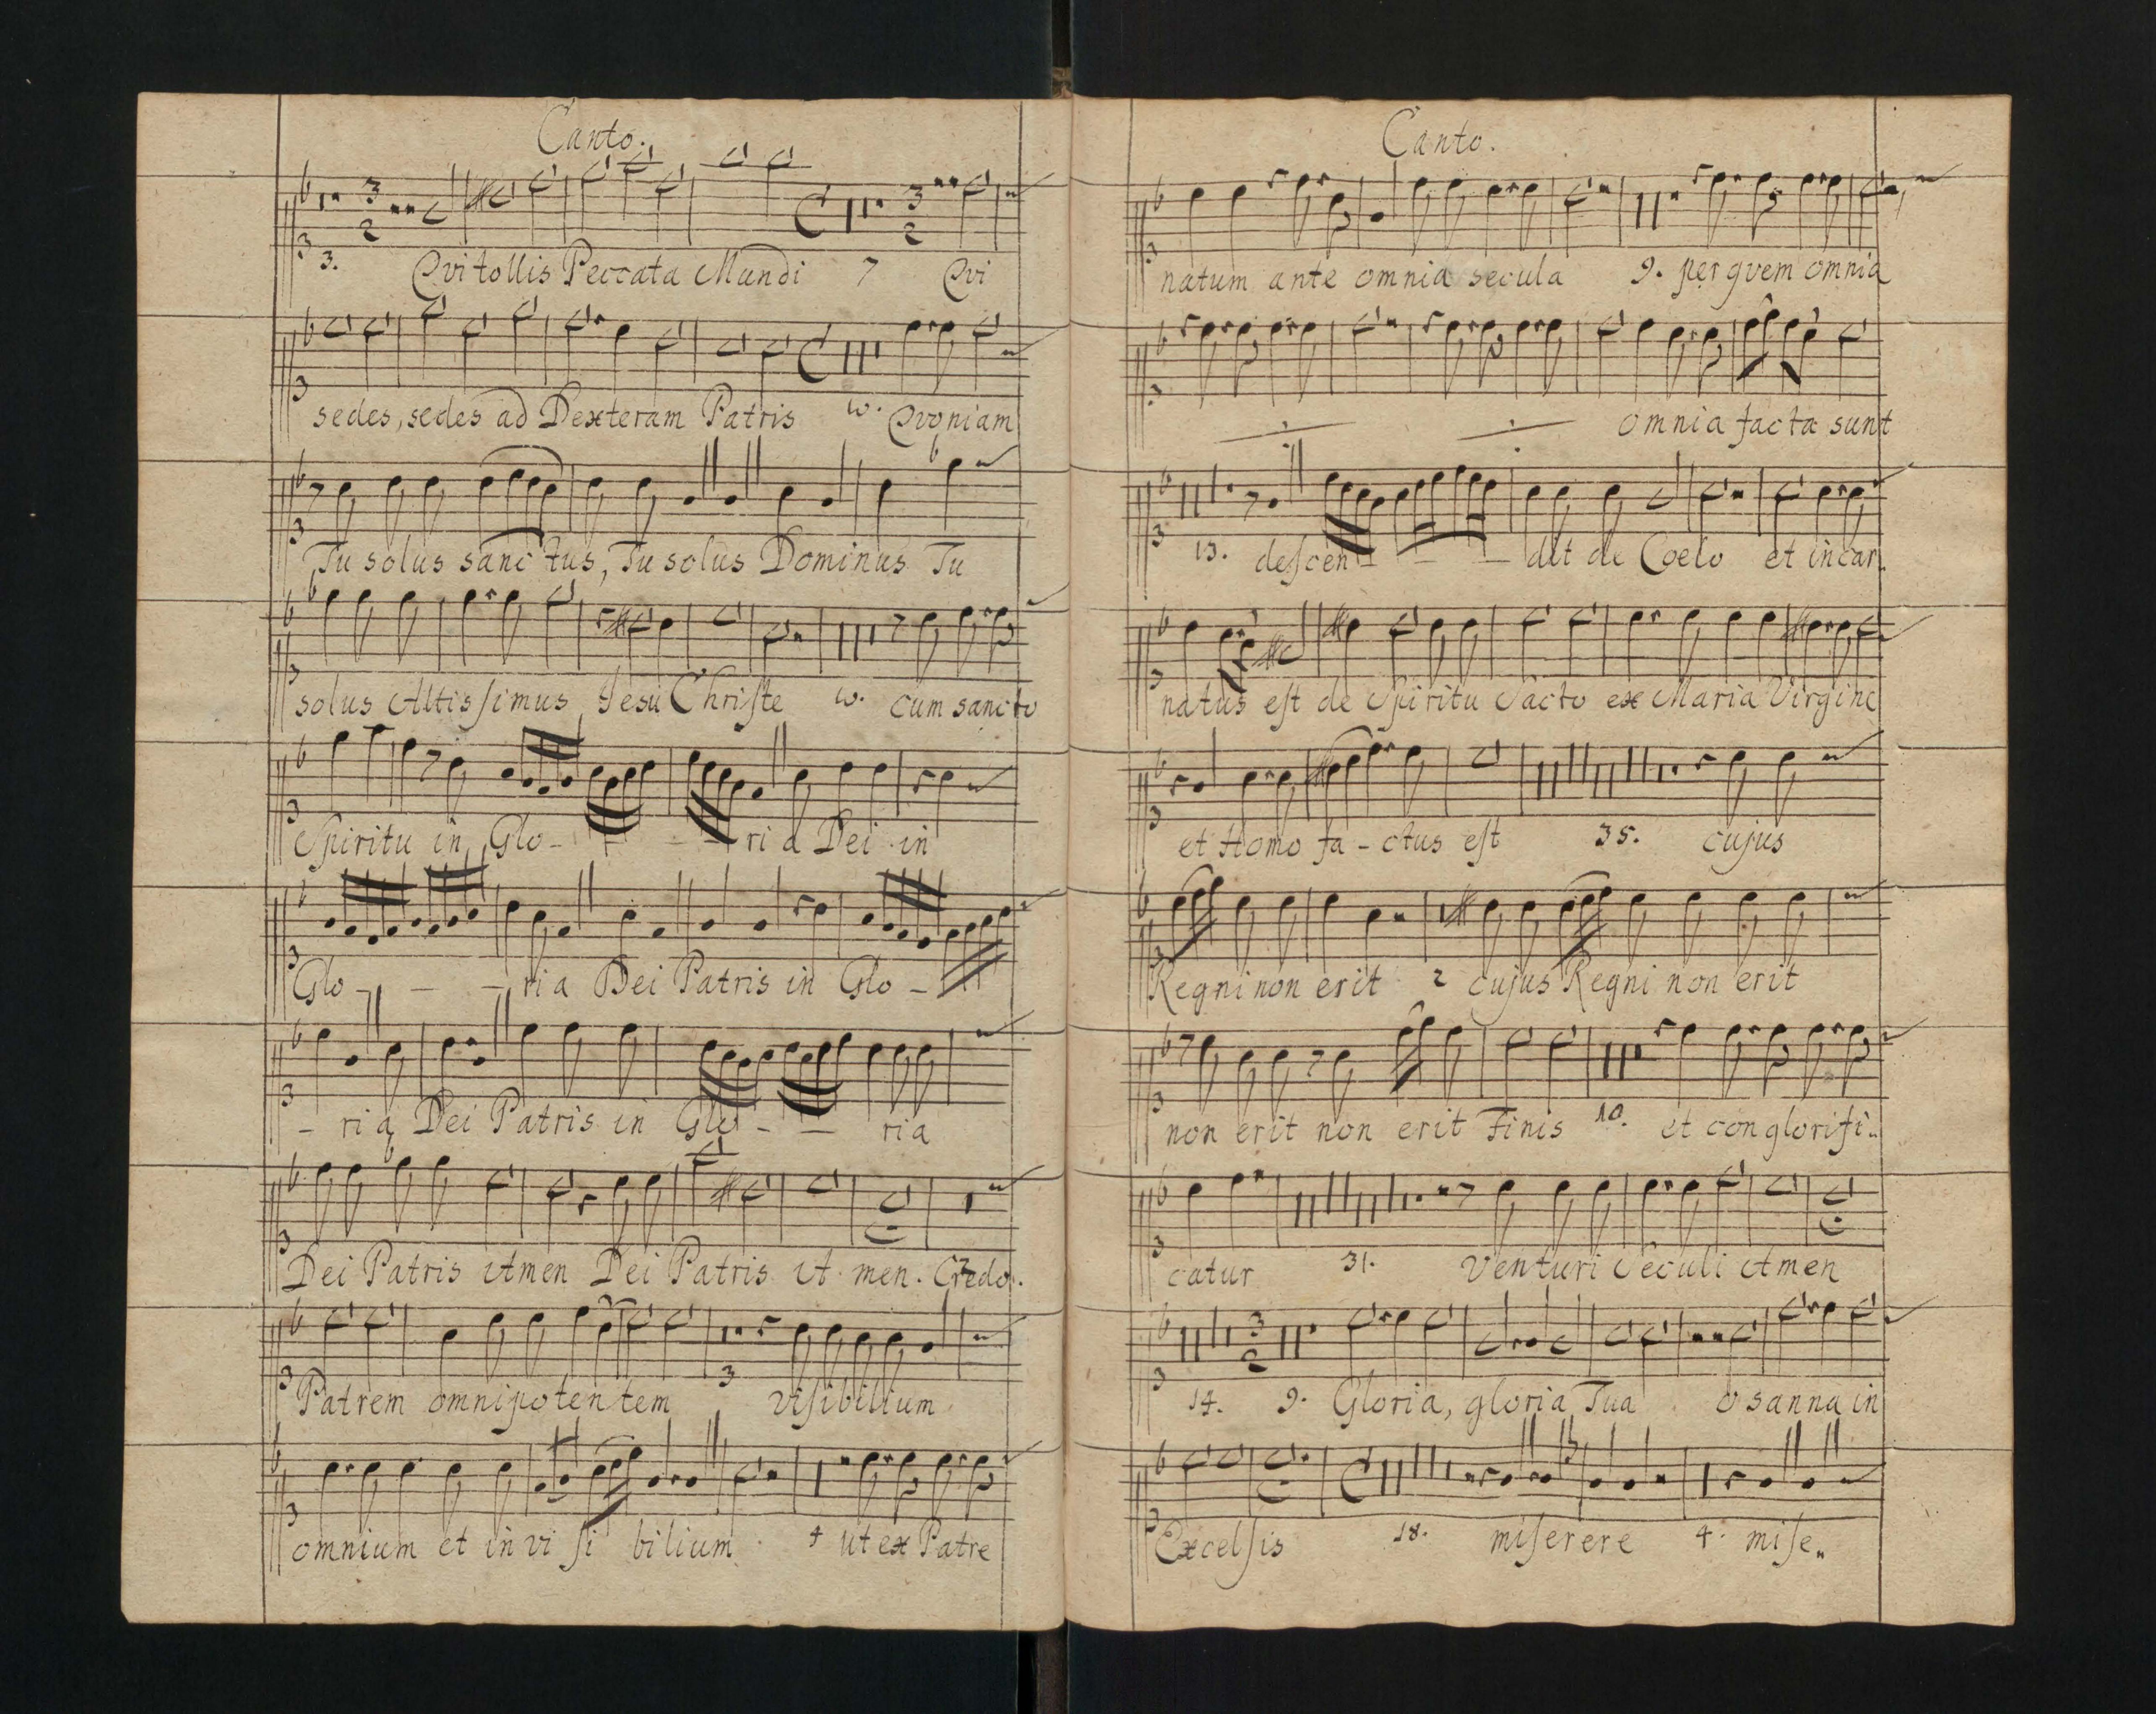 Canto.
3. Qvi tollis Peccata Mundi 7 Qvi
sedes, sedes ad Dexteram Patris 10. Qvoniam
Tu solus sanctus, Tu solus Dominus Tu
solus Altissimus Jesu Christe 10. cum sancto
Spiritu in Glo - - - ria Dei in
Glo - - - ria Dei Patris in Glo -
- ria Dei Patris in Glo - - ria
Dei Patris Amen Dei Patris A men. Credo.
Patrem omnipotentem 3 visibilium
omnium et in vi si bilium 4 ut ex Patre
Canto.
natum ante omnia secula 9. per qvem omnia
omnia facta sunt
13. descen - - - dit de Coelo et incar..
natus est de Spiritu Sacto ex Maria Virgine
et Homo fa - ctus est 35. cujus
Regni non erit 2 cujus Regni non erit
non erit non erit Finis 10. et conglorifi..
catur 31. Venturi Seculi Amen
14. 9. Gloria, gloria Tua osanna in
Excelsis 18. miserere 4. mise..